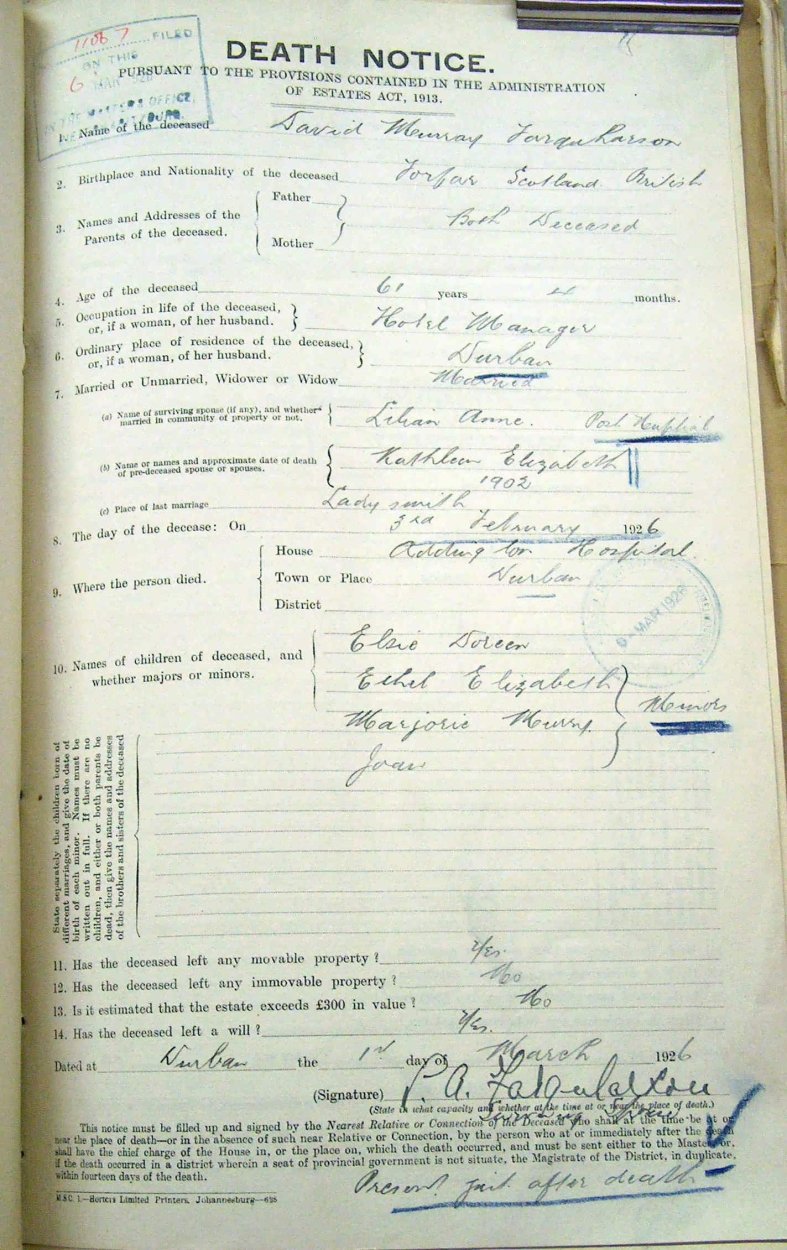 11087 FILED
ON THIS
6 MAR 1926
IN THE MASTER'S OFFICE,
DEATH NOTICE.
PURSUANT TO THE PROVISIONS CONTAINED IN THE ADMINISTRATION
OF ESTATES ACT, 1913.
1. Name of the deceased David Murray Farquharson
2. Birthplace and Nationality of the deceased Forfar Scotland British
3. Names and Addresses of the Parents of the deceased. Father Mother Both Deceased
4. Age of the deceased 61 years 4 months.
5. Occupation in life of the deceased, or, if a woman, of her husband. Hotel Manager
6. Ordinary place of residence of the deceased, or, if a woman, of her husband. Durban
7. Married or Unmarried, Widower or Widow Married
(a) Name of surviving spouse (if any), and whether married in community of property or not. Lilian Anne. Post Nuptial
(b) Name or names and approximate date of death of pre-deceased spouse or spouses. Kathleen Elizabeth
1902
(c) Place of last marriage Ladysmith
8. The day of the decease: On 3rd February 1926
9. Where the person died. House Addington Hospital
Town or Place Durban
District
6-MAR 1926
10. Names of children of deceased, and whether majors or minors. Elsie Doreen
Ethel Elizabeth
Marjorie Murray
Joan
Minors
State separately the children born of
different marriages, and give the date of
birth of each minor. Names must be
written out in full. If there are no
children, and either or both parents be
dead, then give the names and addresses
of the brothers and sisters of the deceased
11. Has the deceased left any movable property? Yes.
12. Has the deceased left any immovable property? No
13. Is it estimated that the estate exceeds £300 in value? No
14. Has the deceased left a will? Yes.
Dated at Durban the 1st day of March 1926
(Signature) L. A. Farquharson
(State in what capacity and whether at the time at or near the place of death.)
Surviving Spouse
This notice must be filled up and signed by the Nearest Relative or Connection of the Deceased who shall at the time be at or
near the place of death—or in the absence of such near Relative or Connection, by the person who at or immediately after the death
shall have the chief charge of the House in, or the place on, which the death occurred, and must be sent either to the Master, or,
if the death occurred in a district wherein a seat of provincial government is not situate, the Magistrate of the District, in duplicate,
within fourteen days of the death.
Present just after death
M.S.C. 1.—Hortors Limited Printers, Johannesburg—635